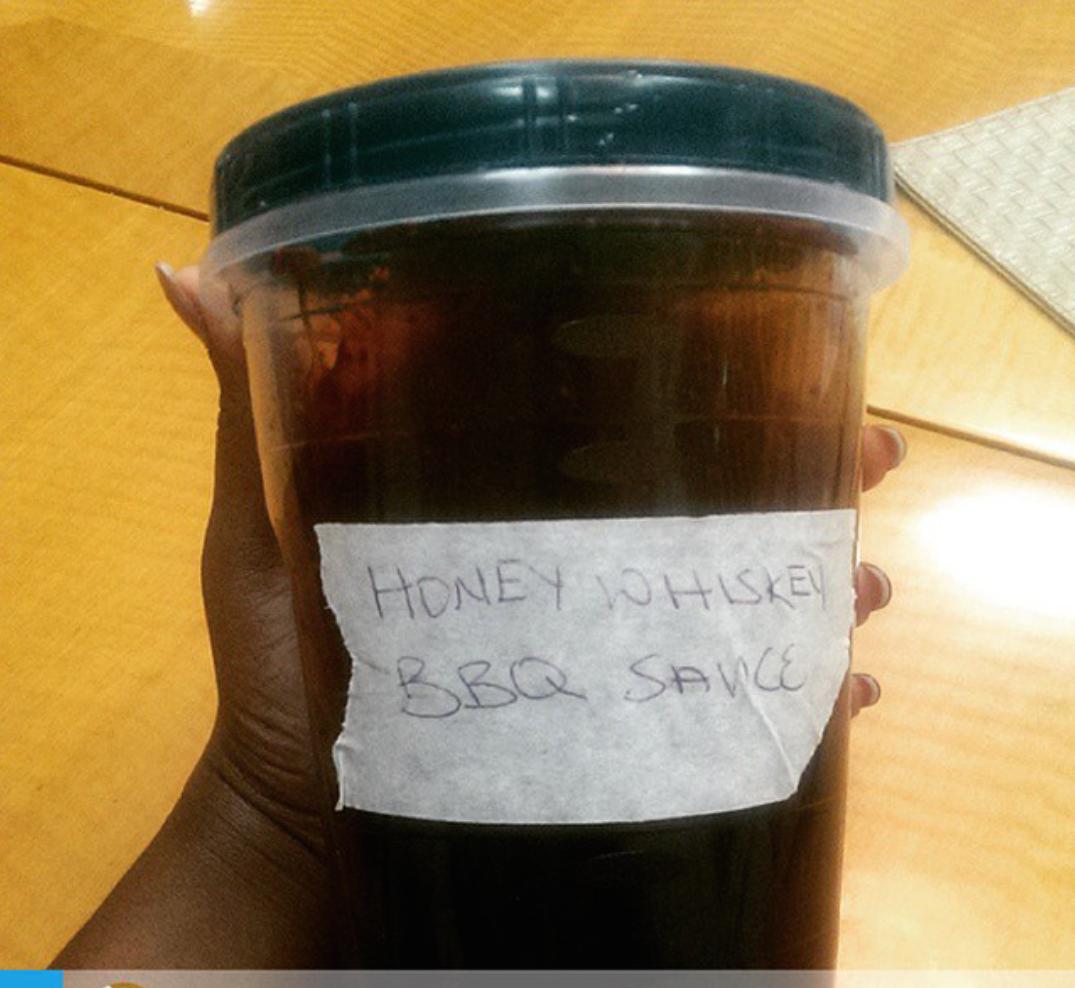 HONEY WHISKEY
BBQ SAUCE